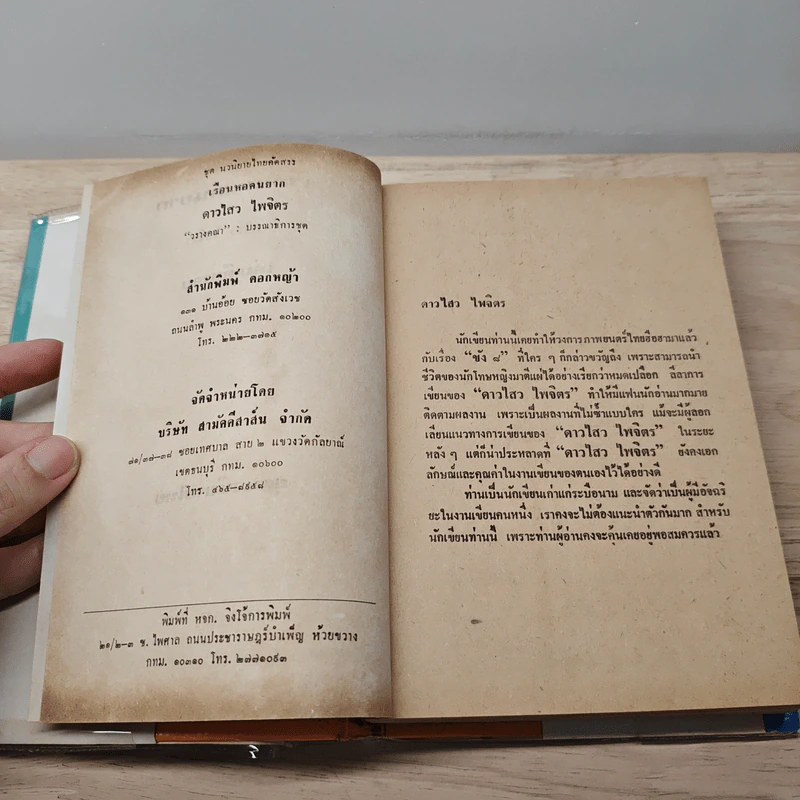 ชุด นวนิยายไทยคัดสรร
เรือนหอคนยาก
ดาวไสว ไพจิตร
"วรางคณา" : บรรณาธิการชุด
สำนักพิมพ์ ดอกหญ้า
๑๓๑ บ้านอ้อย ซอยวัดสังเวช
ถนนลำพู พระนคร กทม. ๑๐๒๐๐
โทร. ๒๒๒–๓๗๑๕
จัดจำหน่ายโดย
บริษัท สามัคคีสาส์น จำกัด
๗๑/๓๗–๓๘ ซอยเทศบาล สาย ๒ แขวงวัดกัลยาณ์
เขตธนบุรี กทม. ๑๐๖๐๐
โทร. ๔๖๕–๘๙๕๘
พิมพ์ที่ หจก. จิงโจ้การพิมพ์
๒๑/๒–๓ ซ. ไพศาล ถนนประชาราษฎร์บำเพ็ญ ห้วยขวาง
กทม. ๑๐๓๑๐ โทร. ๒๗๗๑๐๙๓
ดาวไสว ไพจิตร
นักเขียนท่านนี้เคยทำให้วงการภาพยนตร์ไทยฮือฮามาแล้ว
กับเรื่อง "ขัง ๘" ที่ใคร ๆ ก็กล่าวขวัญถึง เพราะสามารถนำ
ชีวิตของนักโทษหญิงมาตีแผ่ได้อย่างเรียกว่าหมดเปลือก ลีลาการ
เขียนของ "ดาวไสว ไพจิตร" ทำให้มีแฟนนักอ่านมากมาย
ติดตามผลงาน เพราะเป็นผลงานที่ไม่ซ้ำแบบใคร แม้จะมีผู้ลอก
เลียนแนวทางการเขียนของ "ดาวไสว ไพจิตร" ในระยะ
หลัง ๆ แต่ก็น่าประหลาดที่ "ดาวไสว ไพจิตร" ยังคงเอก
ลักษณ์และคุณค่าในงานเขียนของตนเองไว้ได้อย่างดี
ท่านเป็นนักเขียนเก่าแก่ระบือนาม และจัดว่าเป็นผู้มีอัจฉริ
ยะในงานเขียนคนหนึ่ง เราคงจะไม่ต้องแนะนำตัวกันมาก สำหรับ
นักเขียนท่านนี้ เพราะท่านผู้อ่านคงจะคุ้นเคยอยู่พอสมควรแล้ว